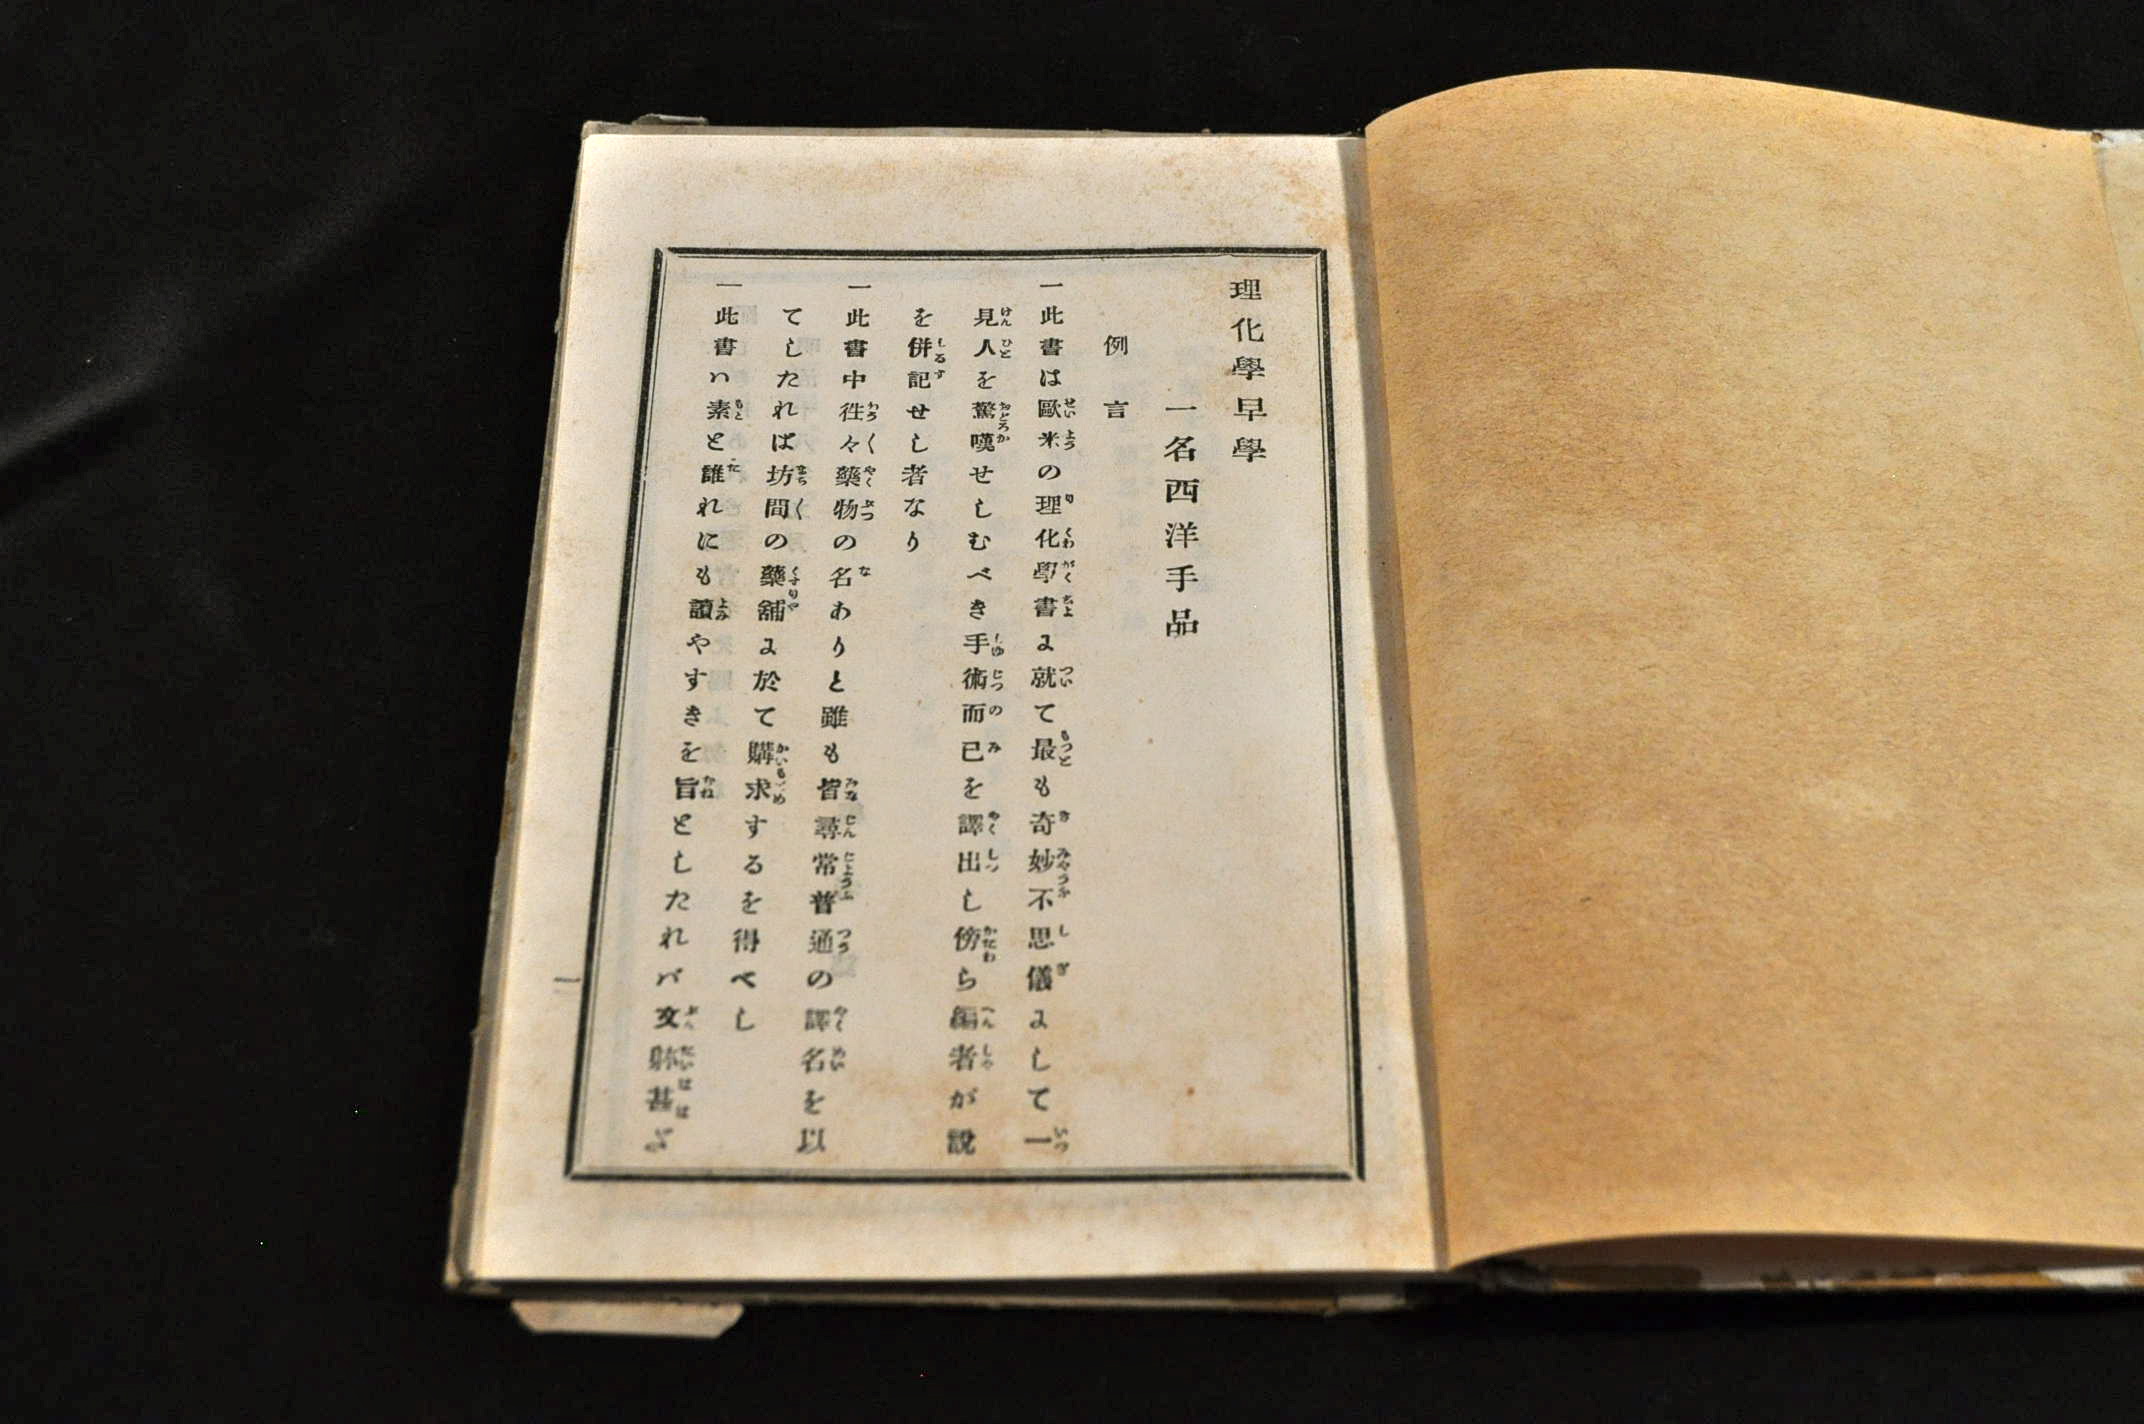 理化學早學
一名西洋手品
例言
一此書は歐米の理化學書に就て最も奇妙不思儀にして一
見人を驚嘆せしむべき手術而已を譯出し傍ら編者が説
を併記せし者なり
一此書中徃々藥物の名ありと雖も皆尋常普通の譯名を以
てしたれば坊間の藥舖に於て購求するを得べし
一此書ハ素と誰れにも讀やすきを旨としたれバ文躰甚
一